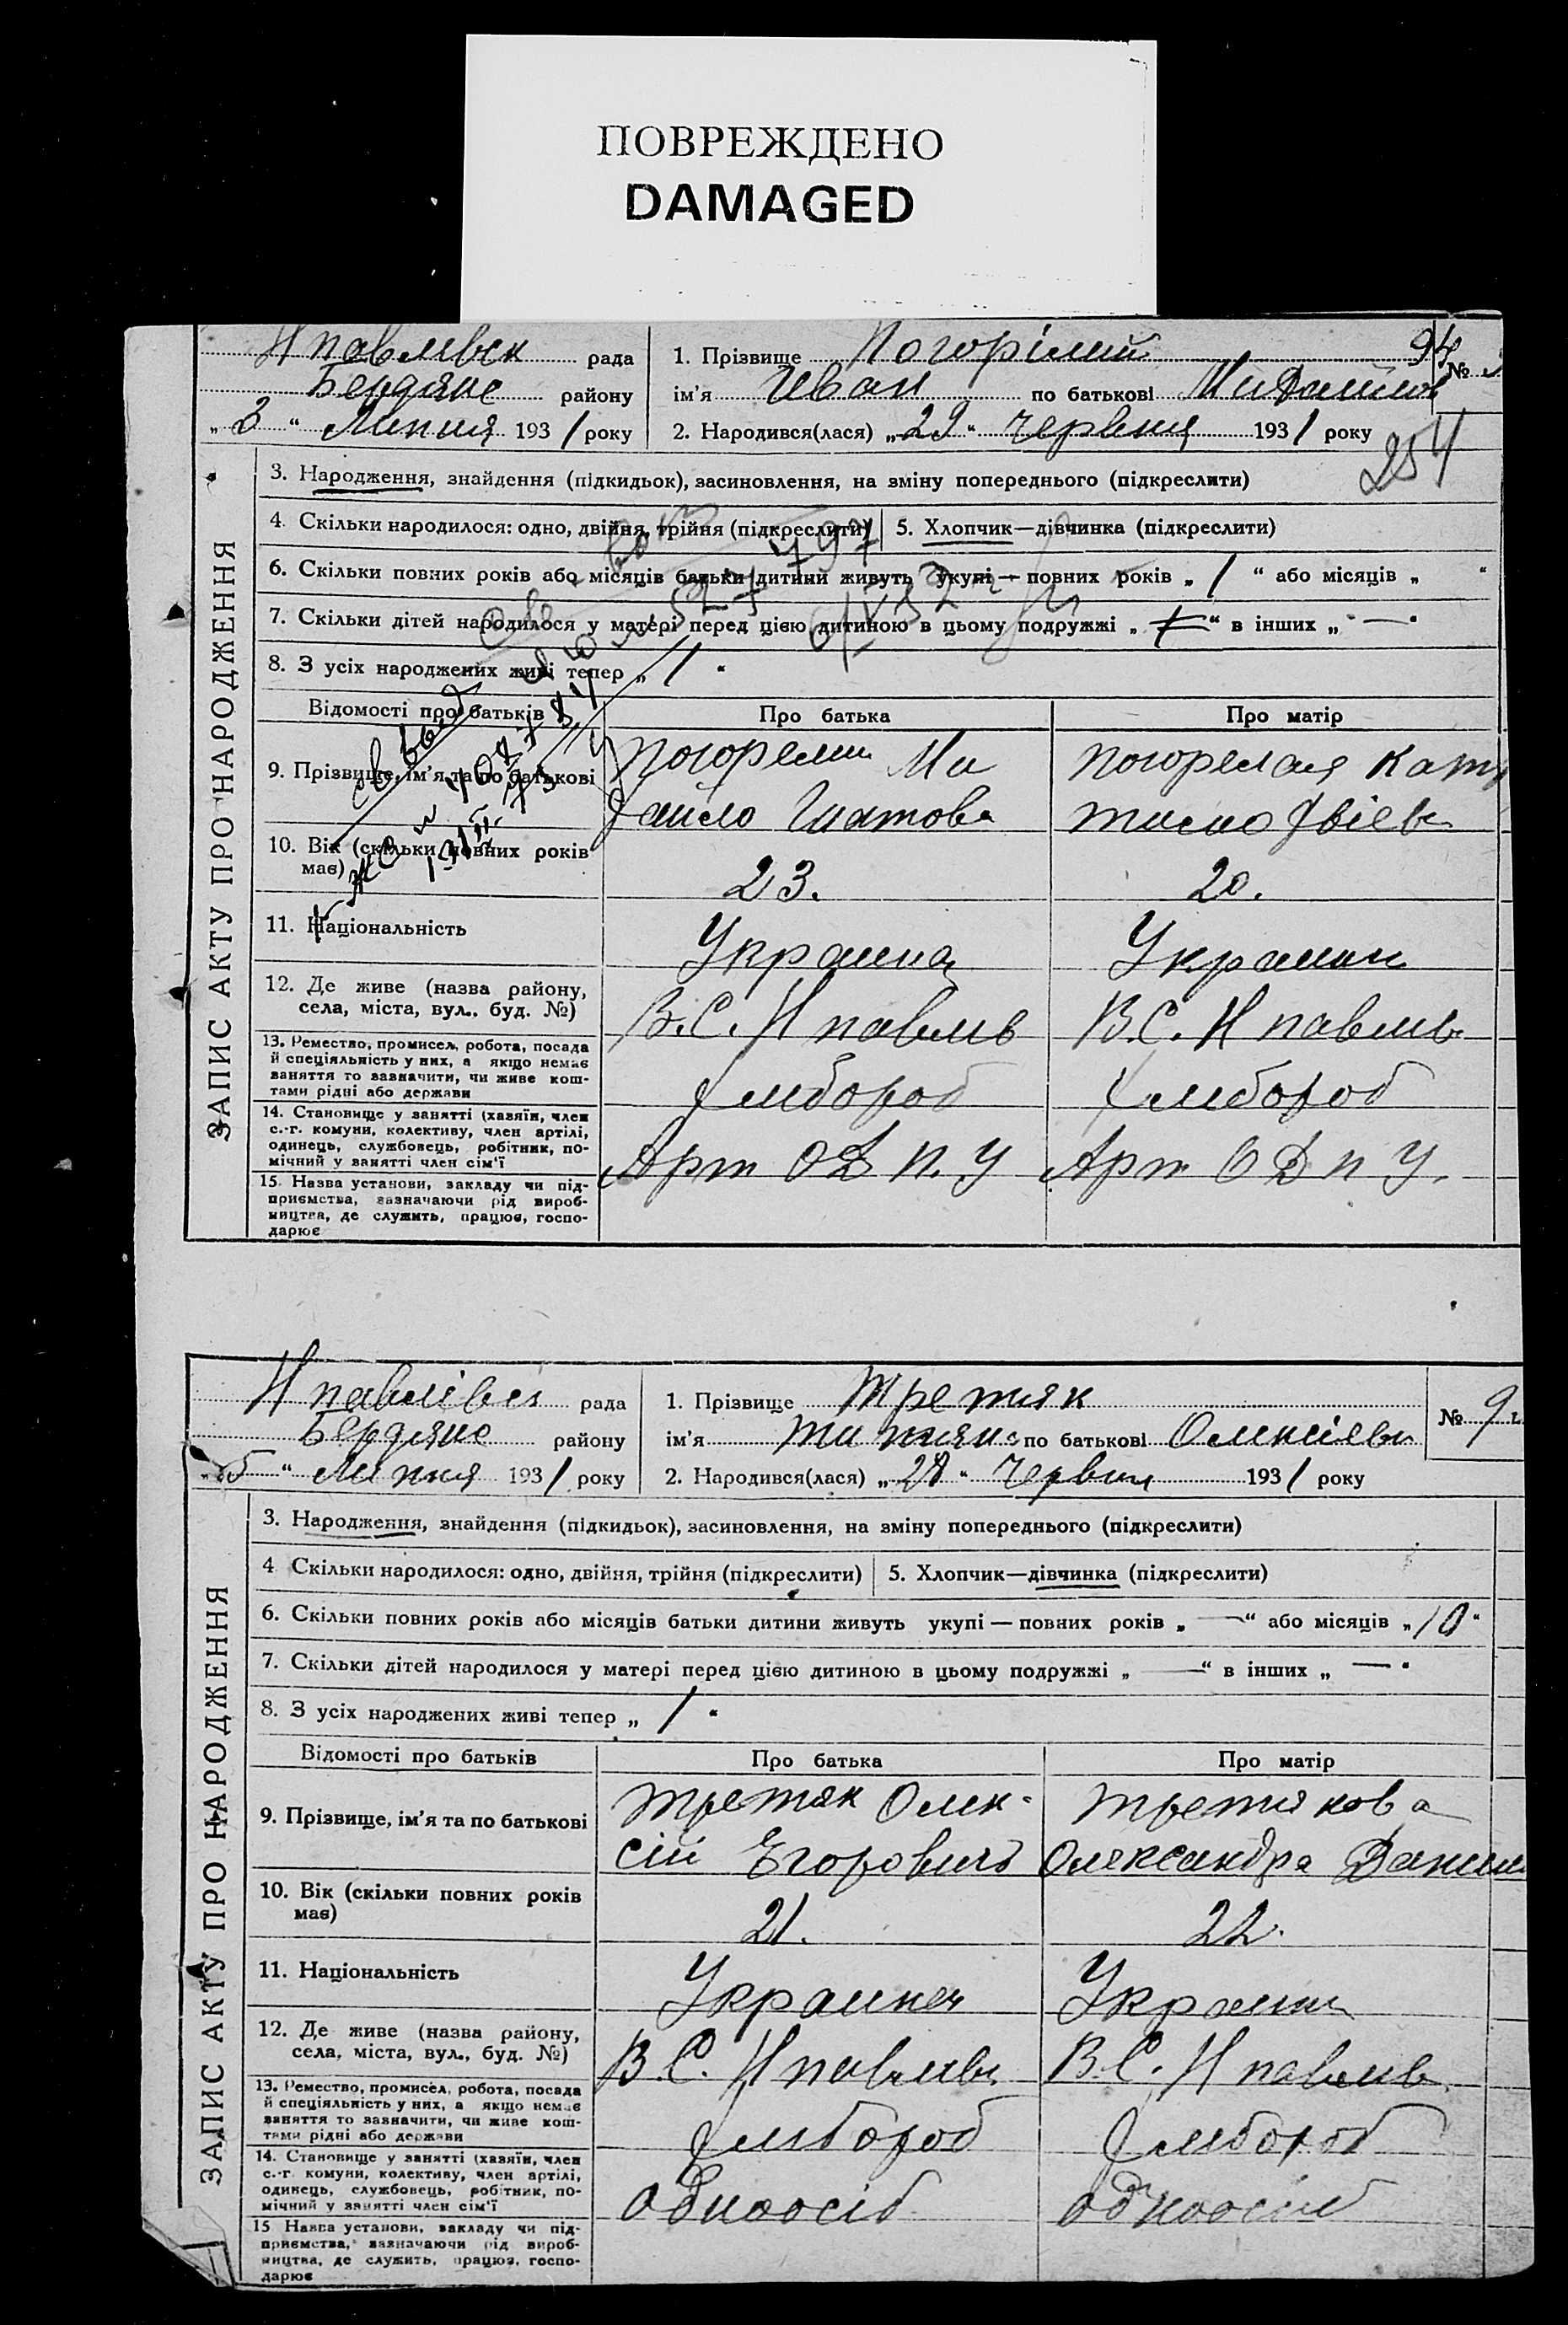 ПОВРЕЖДЕНО
DAMAGED
Нпавлівск рада
Бердянс района району
„ 3 “ Липня 1931 року
1. Прізвище Погорілий
94
№
ім'я Иван по батькові Михайлов
2. Народився(лася) „29“ Червня 1931 року
254
ЗАПИС АКТУ ПРО НАРОДЖЕННЯ
3. Народження, знайдення (підкидьок), засиновлення, на зміну попереднього (підкреслити)
4. Скільки народилося: одно, двійня, трійня (підкреслити)
5. Хлопчик—дівчинка (підкреслити)
6. Скільки повних років або місяців батьки дитини живуть укупі — повних років „ 1 “ або місяців „ “
7. Скільки дітей народилося у матері перед цією дитиною в цьому подружжі „ “ в інших „ — “
8. З усіх народжених живі тепер „ 1 “
Відомості про батьків
Про батька
Про матір
9. Прізвище, ім'я та по батькові
Погорелий Ми
хайло
Погорелая
10. Вік (скільки повних років
має)
23.
20.
11. Національність
Украинец
Украин
12. Де живе (назва району,
села, міста, вул., буд. №)
В.С. Нпавлив
В.С. Нпавлив
13. Ремество, промисел, робота, посада
й спеціяльність у них, а якщо немає
заняття то зазначити, чи живе кош-
тами рідні або держави
Хлібороб
Хлібороб
14. Становище у занятті (хазяїн, член
с.-г. комуни, колективу, член артілі,
одинець, службовець, робітник, по-
мічний у занятті член сім'ї
Арт ОДПУ
Арт ОДПУ.
15. Назва установи, закладу чи під-
приємства, зазначаючи рід вироб-
ництва, де служить, працює, госпо-
дарює
Нпавлівск рада
Бердянс району
„ 5 “ Липня 1931 року
1. Прізвище Третяк
№ 9
ім'я по батькові Олексієвн
2. Народився(лася) „28“ Червня 1931 року
ЗАПИС АКТУ ПРО НАРОДЖЕННЯ
3. Народження, знайдення (підкидьок), засиновлення, на зміну попереднього (підкреслити)
4 Скільки народилося: одно, двійня, трійня (підкреслити)
5. Хлопчик—дівчинка (підкреслити)
6. Скільки повних років або місяців батьки дитини живуть укупі — повних років „ — “ або місяців „ 10 “
7. Скільки дітей народилося у матері перед цією дитиною в цьому подружжі „ — “ в інших „ — “
8. З усіх народжених живі тепер „ 1 “
Відомості про батьків
Про батька
Про матір
9. Прізвище, ім'я та по батькові
Третяк Олек-
сій Егорович
Третякова
Олександра Данил
10. Вік (скільки повних років
має)
21.
22.
11. Національність
Украинец
Украин
12. Де живе (назва району,
села, міста, вул., буд. №)
В.С. Нпавлив
В.С. Нпавлив
13. Ремество, промисел, робота, посада
й спеціяльність у них, а якщо немає
заняття то зазначити, чи живе кош-
тами рідні або держави
Хлібороб
Хлібороб
14. Становище у занятті (хазяїн, член
с.-г. комуни, колективу, член артілі,
одинець, службовець, робітник, по-
мічний у занятті член сім'ї
одноосіб
одноосіб
15 Назва установи, закладу чи під-
приємства, зазначаючи рід вироб-
ництва, де служить, працює, госпо-
дарює